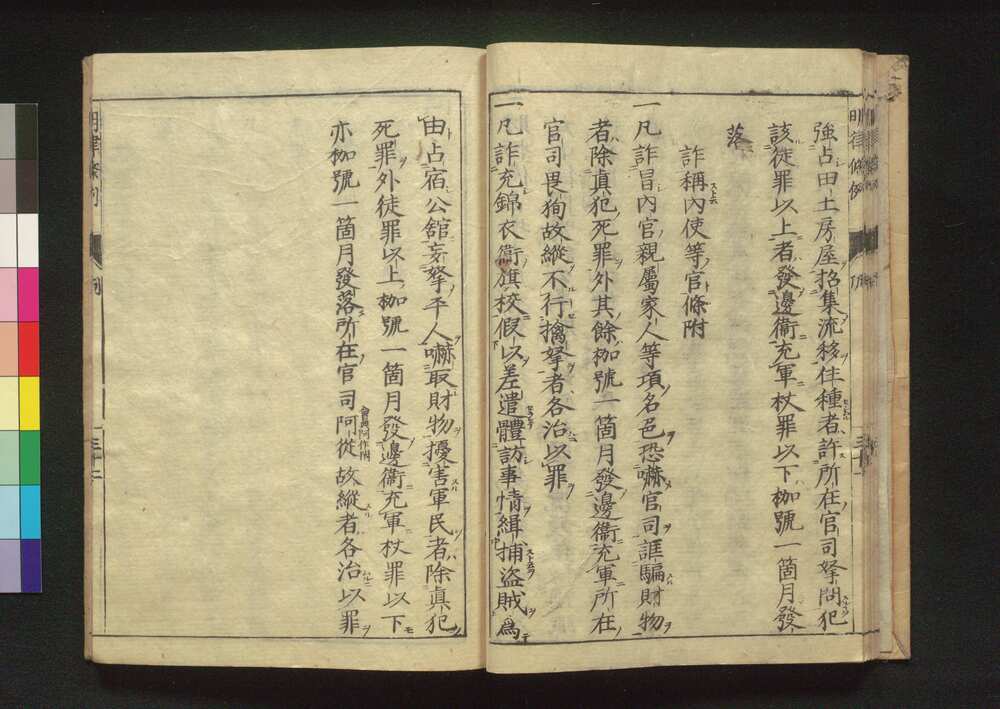 強占田土房屋招集流移住種者許所在官司拏問犯
該徒罪以上者發邊衞充軍杖罪以下枷號一箇月發
落
詐稱內使等官條附
一凡詐冒內官親屬家人等項名色恐嚇官司誆騙財物
者除眞犯死罪外其餘枷號一箇月發邊衞充軍所在
官司畏狥故縱不行擒拏者各治以罪
一凡詐充錦衣衞旗校假以差遣體訪事情緝捕盜賊爲
由占宿公舘妄拏平人嚇取財物擾害軍民者除眞犯
死罪外徒罪以上枷號一箇月發邊衞充軍杖罪以下
亦枷號一箇月發落所在官司阿從故縱者各治以罪
明律條例
三十二